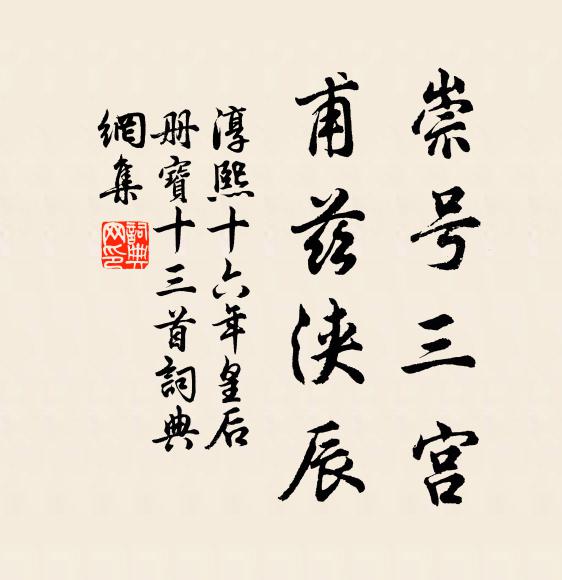 崇号三宫
甫兹浃辰
淳熙十六年皇后
册寶十三首詞典
網集
詞典网印